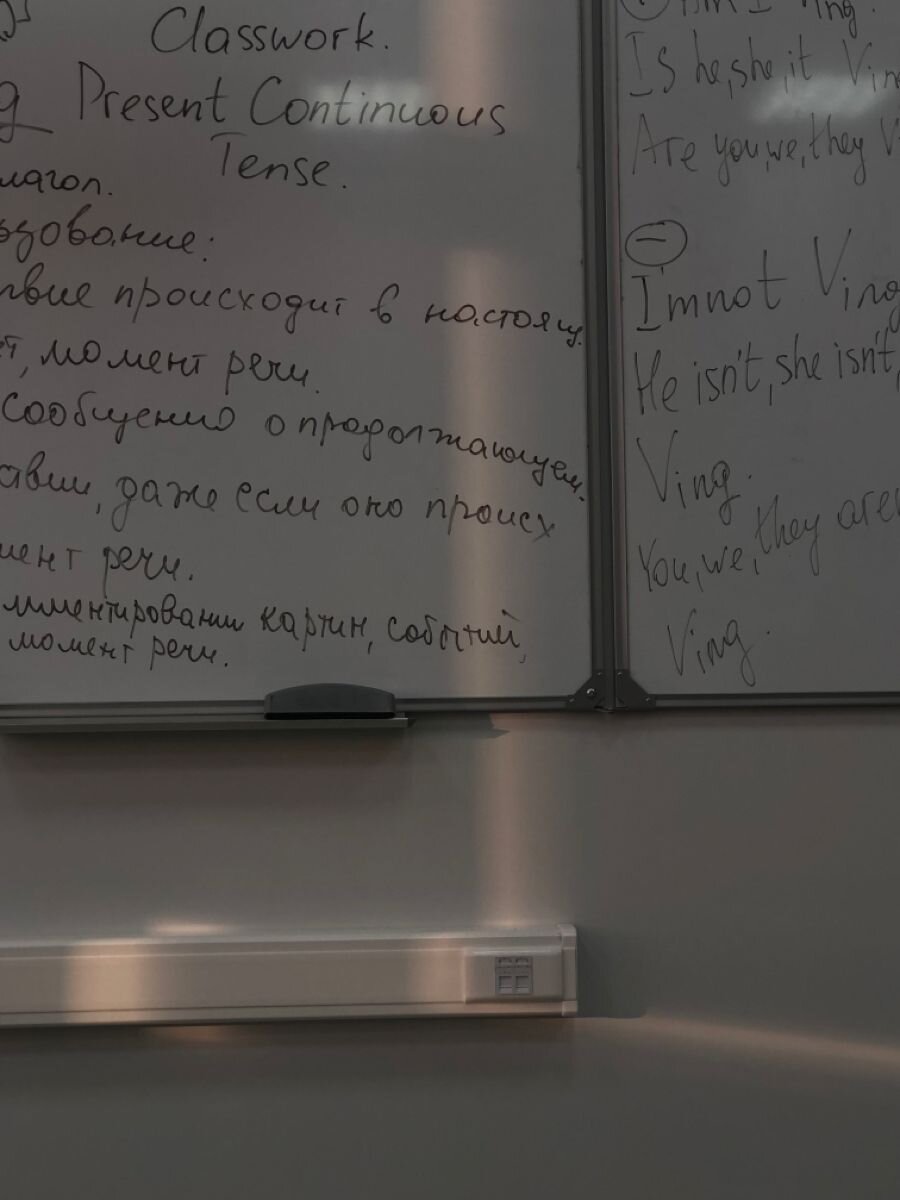 Classwork.
Present Continuous
Tense.
лагол.
ьзование:
твие происходит в настоящ.
ет, момент речи.
сообщению о продолжающем.
авии, даже если оно происх
мент речи.
мментировании картин, событий,
момент речи.
Is he, she, it Ving
Are you, we, they V
−
I'm not Ving
He isn't, she isn't,
Ving.
You, we, they aren
Ving.